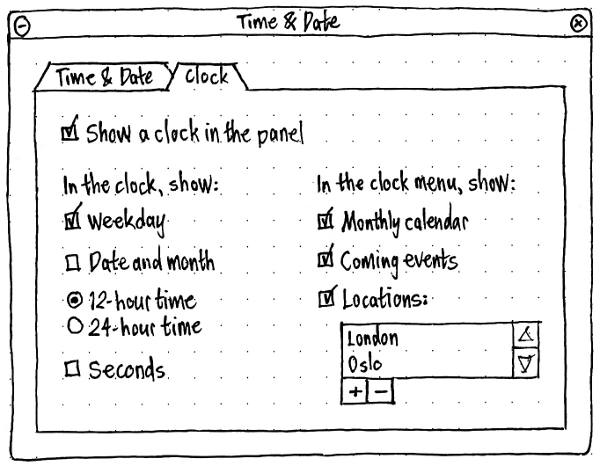 Time & Date
Time & Date
Clock
Show a clock in the panel
In the clock, show:
Weekday
Date and month
12-hour time
24-hour time
Seconds
In the clock menu, show:
Monthly calendar
Coming events
Locations:
London
Oslo
+ -